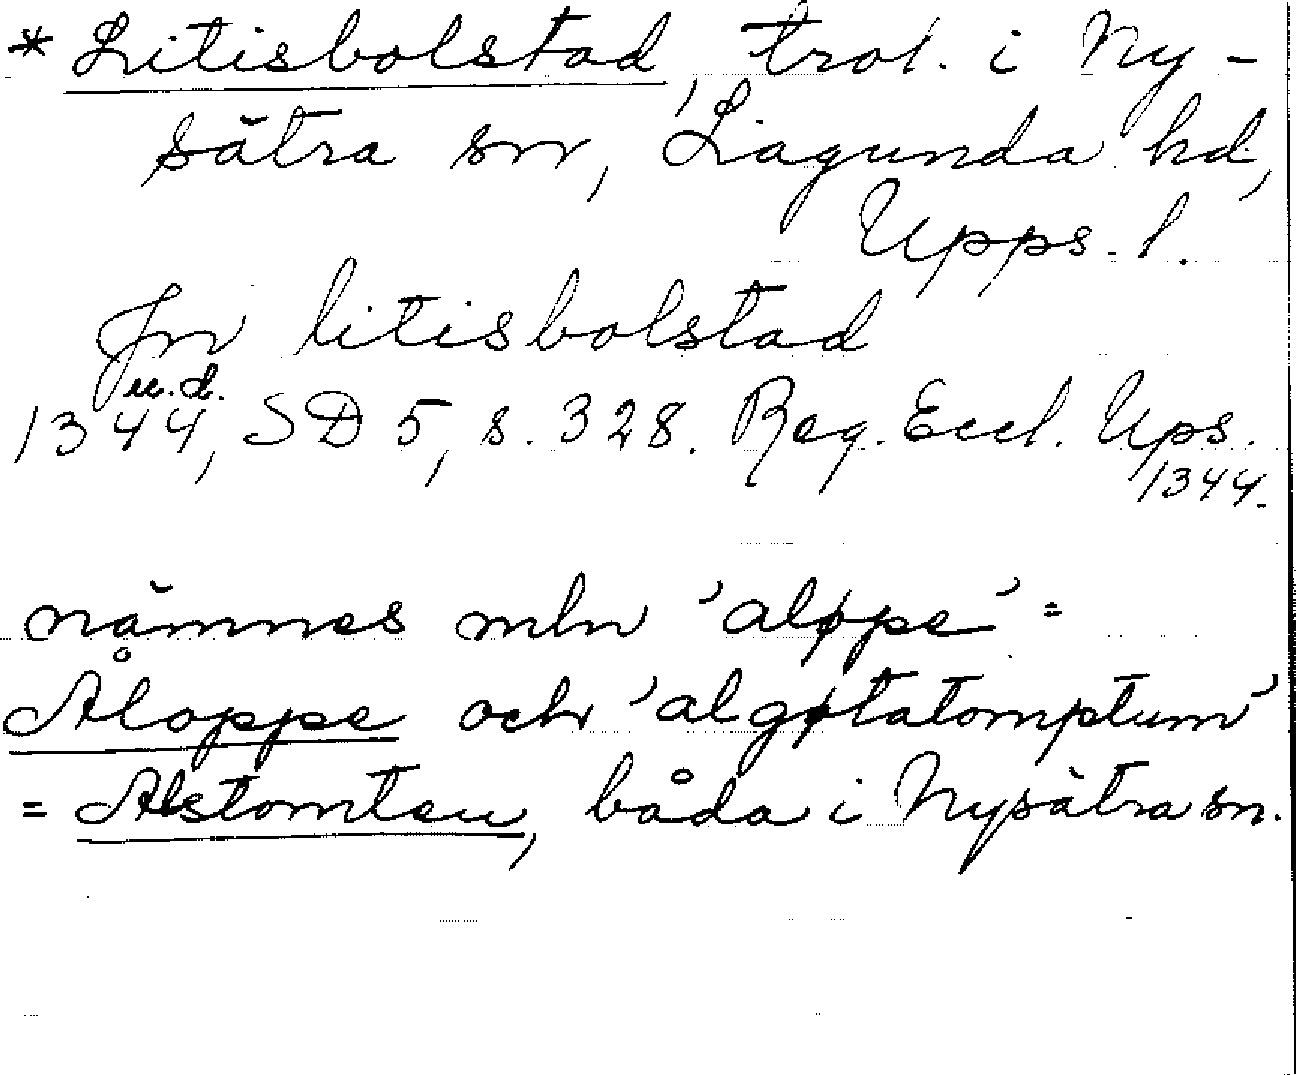 * Litisbolstad, trol. i Ny-
sätra sn, Lagunda hd,
Upps. l.
Jn litisbolstad
u.d.
1344, SD 5, s. 328. Reg. Eccl. Ups.
1344.
nämnes mln 'aløppe' =
Åloppe och 'algøtatomptum'
= Alstomten, båda i Nysätra sn.